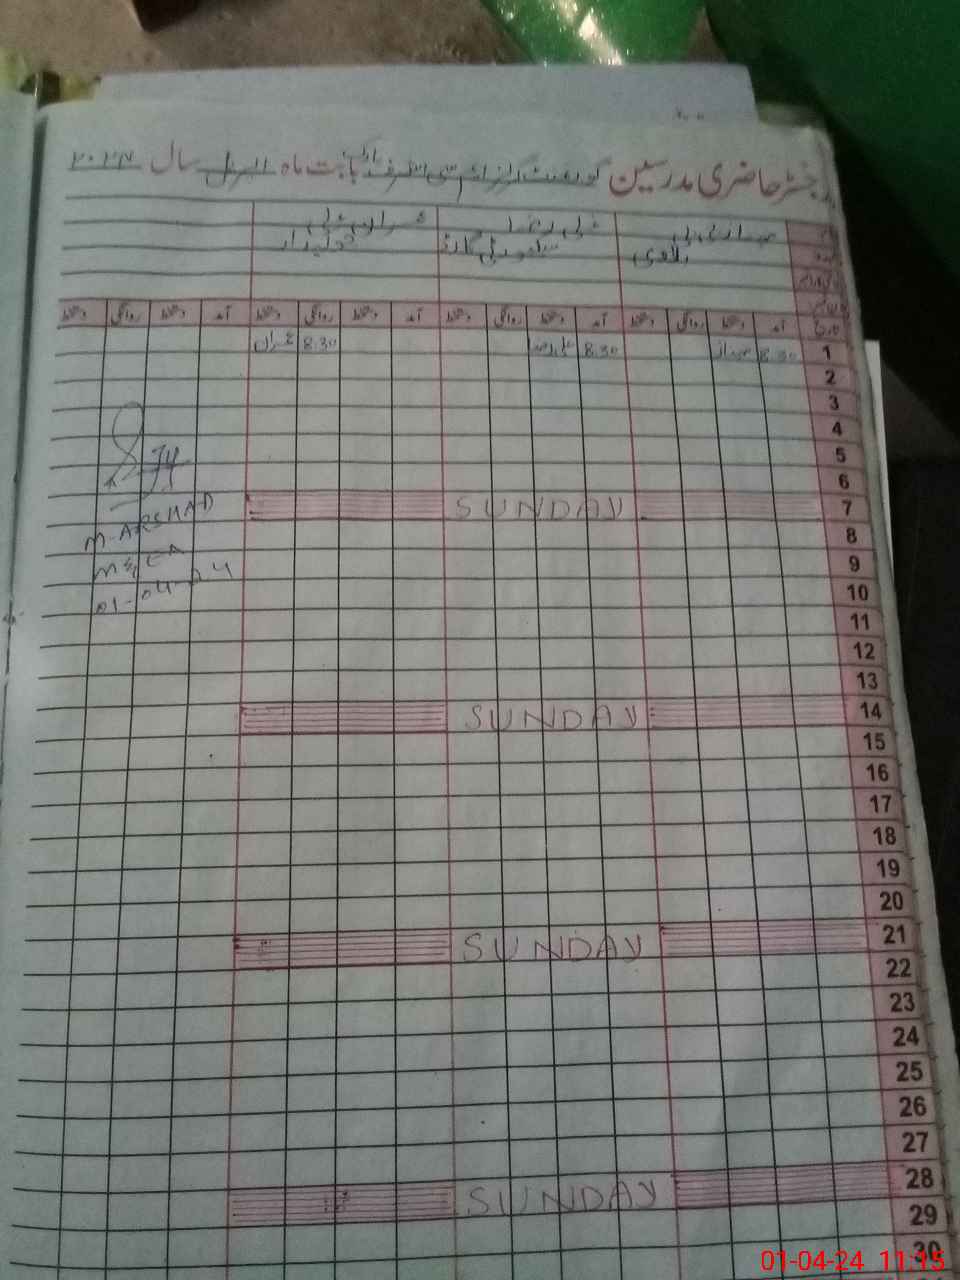 رجسٹر حاضری مدرسین گورنمنٹ گرلز بابت ماہ اپریل سال ۲۰۲۴
علی رضا عمران علی
سیکورٹی گارڈ
آمد دستخط روانگی دستخط آمد دستخط روانگی دستخط آمد دستخط روانگی دستخط آمد دستخط روانگی دستخط
1 8.30 8.30 علی رضا 8.30 عمران
2
3
4
5
6
7 SUNDAY
8
9
10
11
12
13
14 SUNDAY
15
16
17
18
19
20
21 SUNDAY
22
23
24
25
26
27
28 SUNDAY
29
30
M. ARSHAD
MEA
01-04-24
01-04-24 11:15